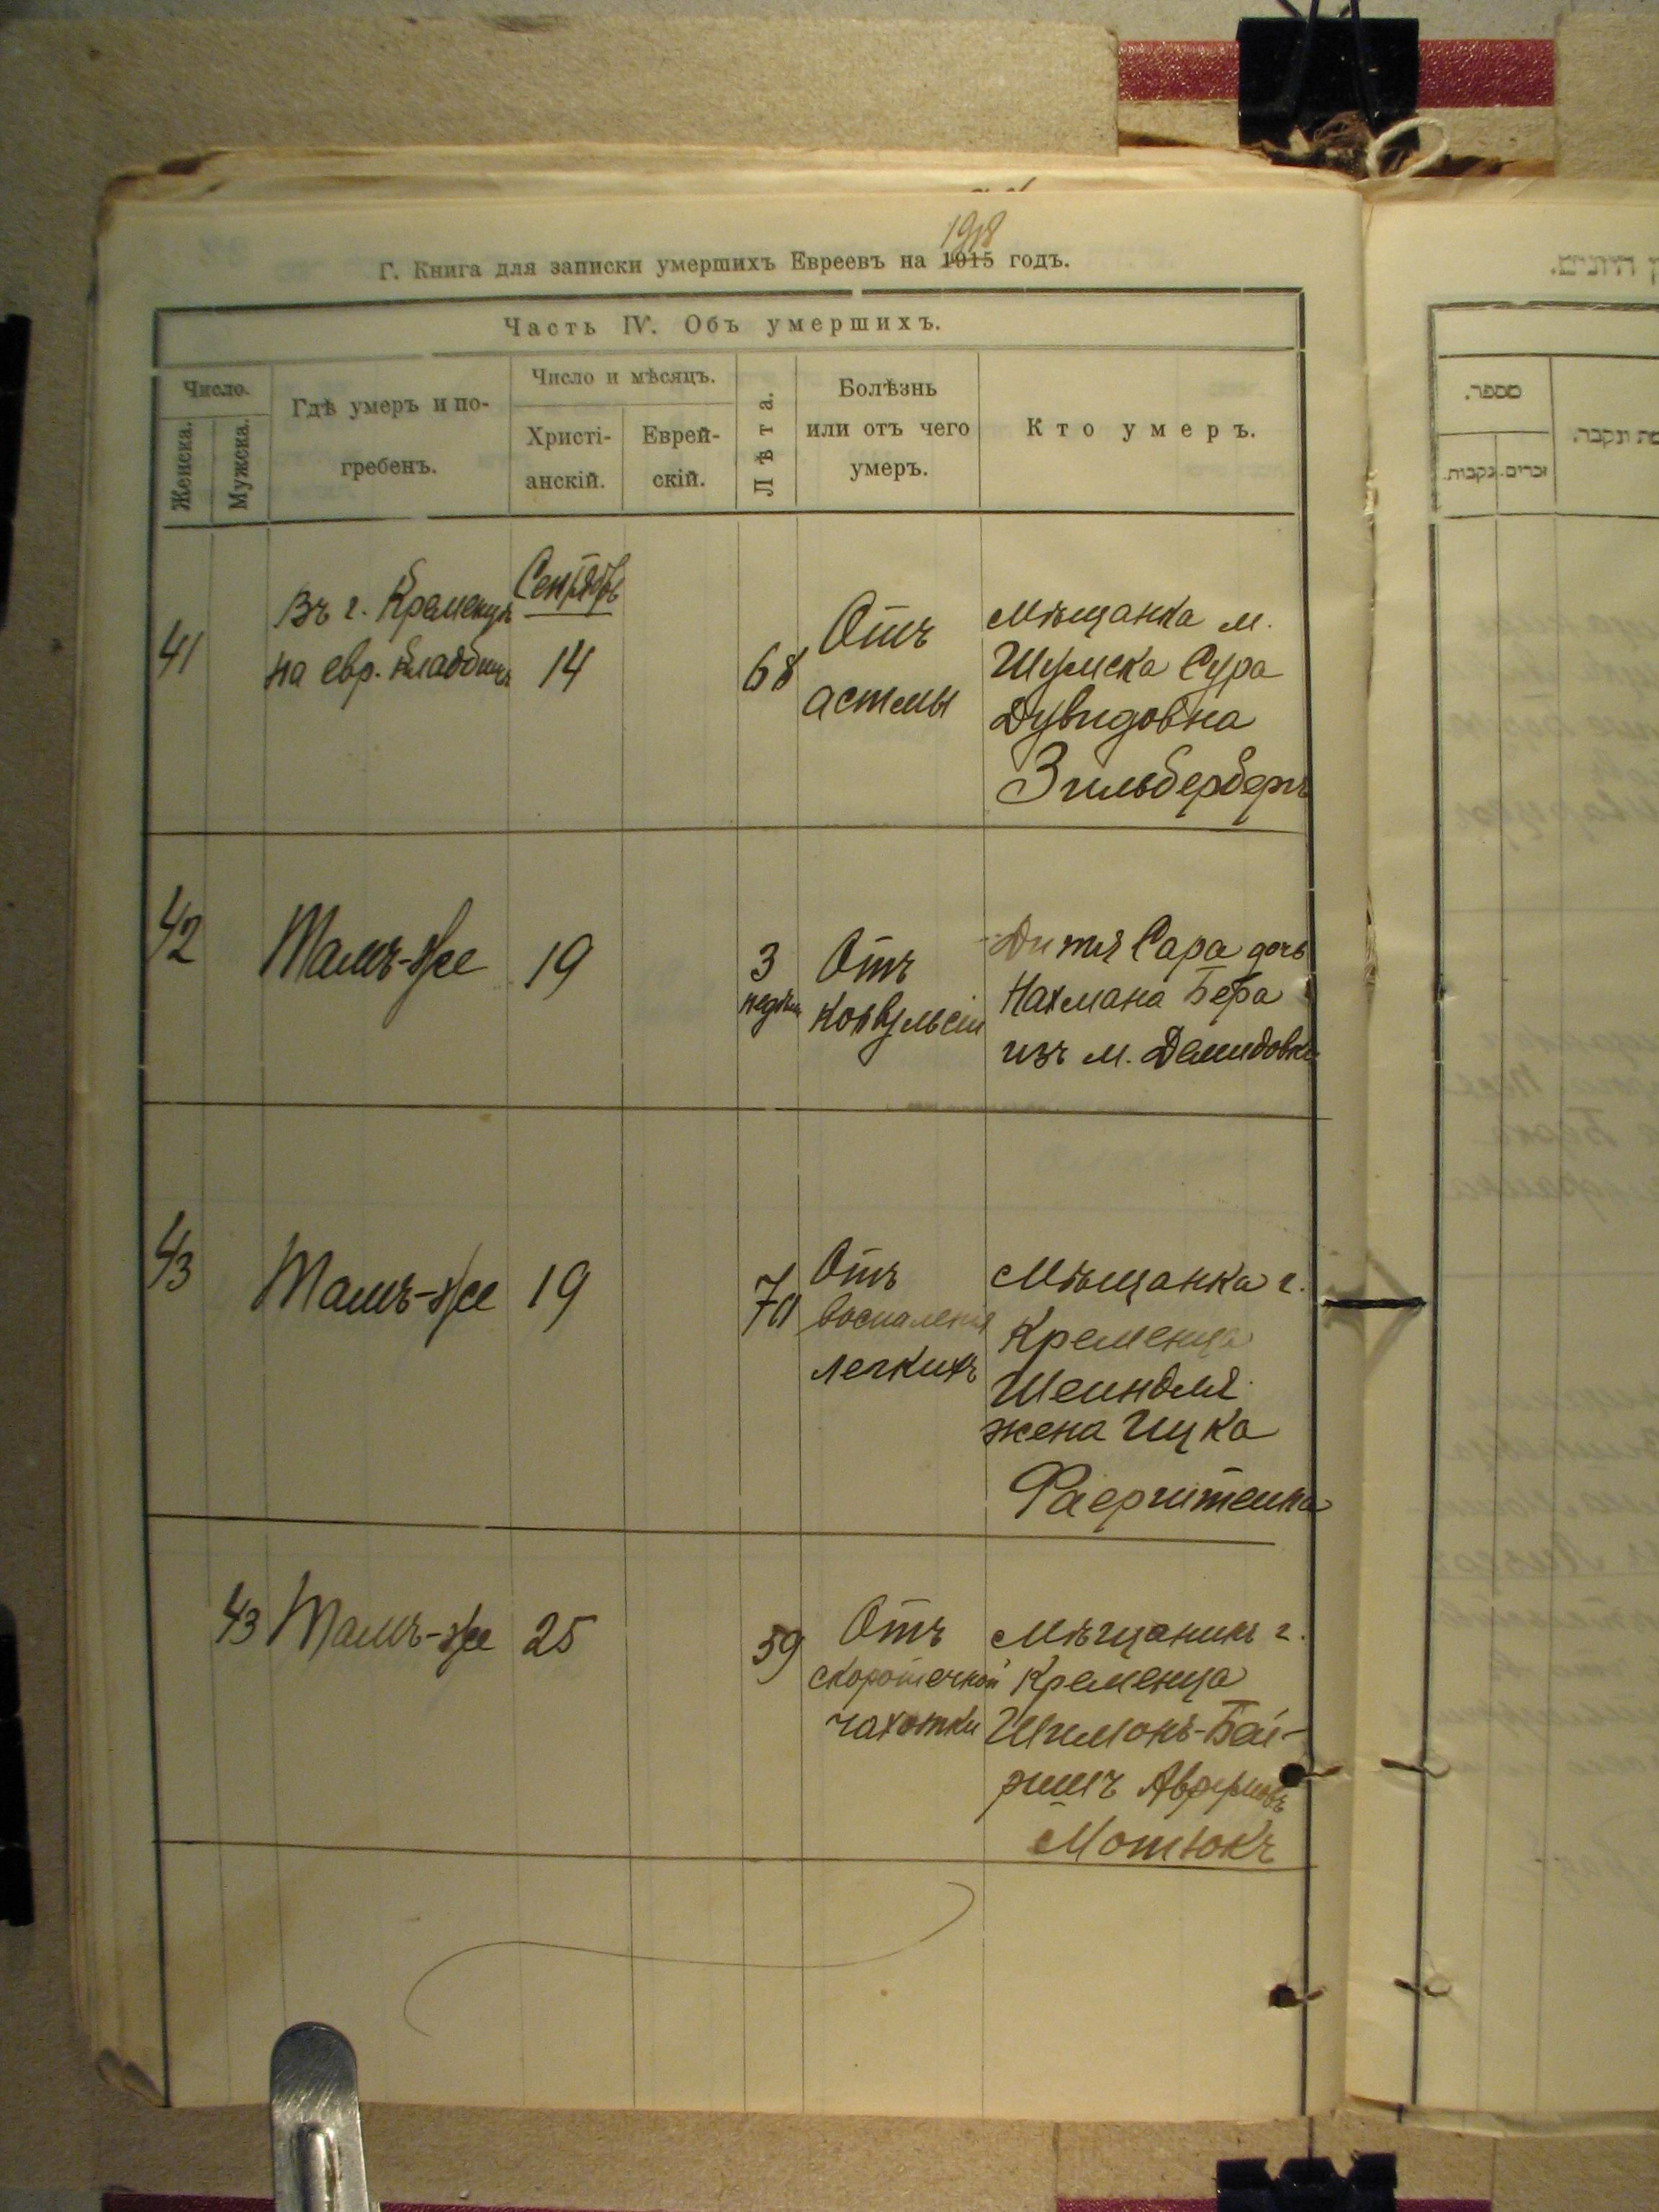 1918
Г. Книга для записки умершихъ Евреевъ на 1915 годъ.
Часть IV. Объ умершихъ.
Число.
Женска.
Мужска.
Гдѣ умеръ и по-
гребенъ.
Число и мѣсяцъ.
Христі-
анскій.
Еврей-
скій.
Лѣта.
Болѣзнь
или отъ чего
умеръ.
Кто умеръ.
41
Въ г. Кременцѣ
на евр. кладбищѣ
Сентябрь
14
68
Отъ
астмы
Мѣщанка м.
Шумска Сура
Дувидовна
Зильбербергъ
42
Тамъ-же
19
3
недѣли
Отъ
конвульсіи
Дитя Сара дочь
Нахмана Бера
изъ м. Демидовки
43
Тамъ-же
19
70
Отъ
воспаленія
легкихъ
Мѣщанка г.
Кременца
Шейндля
жена Ицка
Фаерштейна
43
Тамъ-же
25
59
Отъ
скоротечной
чахотки
Мѣщанинъ г.
Кременца
Шимонъ-Бей-
Мотюкъ
מספר.
זכרים.
נקבות.